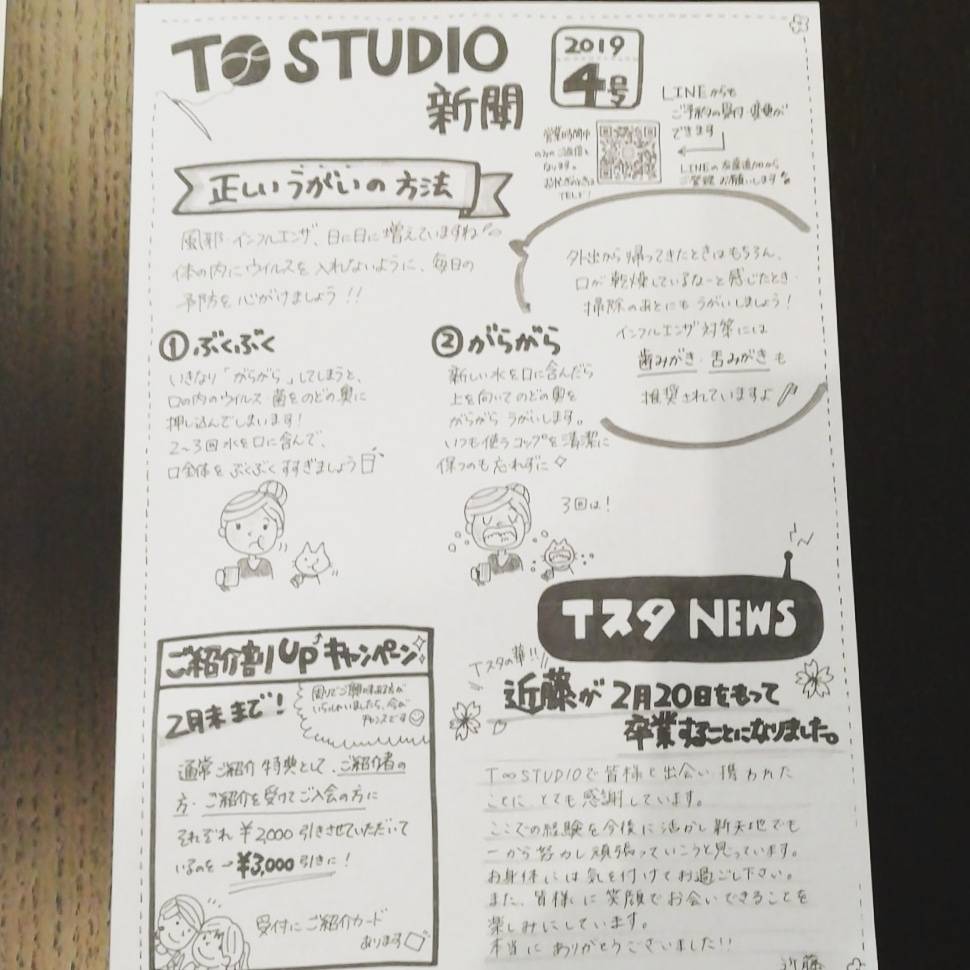 T∞ STUDIO
新聞
2019
4号
LINEからも
ご予約の受付・変更が
できます
営業時間中
のみのご返信と
なります。
お急ぎの方は
TELで!
LINEの友達追加から
ご登録お願いします
正しいうがいの方法
風邪・インフルエンザ、日に日に増えていますね
体の内にウイルスを入れないように、毎日の
予防を心がけましょう!!
外出から帰ってきたときはもちろん、
口が乾燥しているなーと感じたとき・
掃除のあとにもうがいしましょう!
インフルエンザ対策には
歯みがき・舌みがきも
推奨されていますよ
①ぶくぶく
いきなり「がらがら」してしまうと、
口の内のウイルス・菌をのどの奥に
押し込んでしまいます!
2~3回水を口に含んで、
口全体をぶくぶくすすぎましょう
②がらがら
新しい水を口に含んだら
上を向いてのどの奥を
がらがらうがいします。
いつも使うコップを清潔に
保つのも忘れずに
3回は!
TスタNEWS
Tスタの華!!
近藤が2月20日をもって
卒業することになりました。
T∞STUDIOで皆様と出会い携われた
ことにとても感謝しています。
ここでの経験を今後に活かし新天地でも
一から努力し頑張っていこうと思っています。
お身体には気を付けてお過ごし下さい。
また、皆様に笑顔でお会いできることを
楽しみにしています。
本当にありがとうございました!!
近藤
ご紹介割UPキャンペーン
2月末まで!
周りでご興味ある方が
いらっしゃいましたら、今が
チャンスです
通常ご紹介特典として、ご紹介者の
方・ご紹介を受けてご入会の方に
それぞれ¥2,000引きさせていただいて
いるのを→¥3,000引きに!
受付にご紹介カード
あります